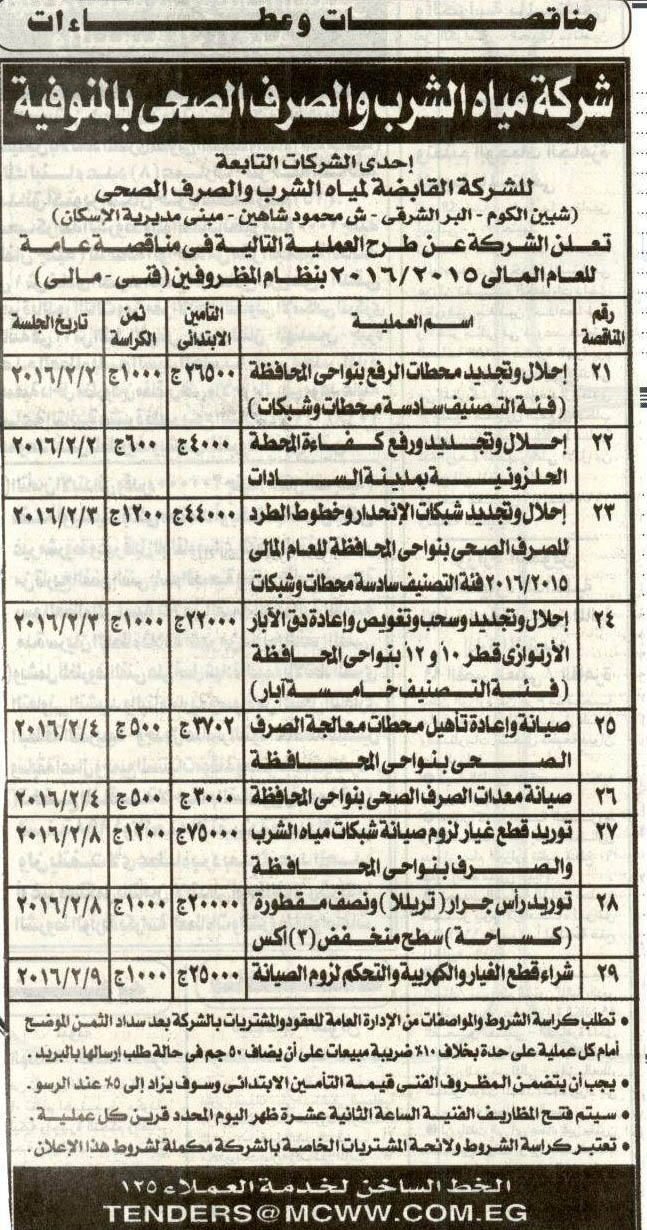 مناقصات وعطاءات
شركة مياه الشرب والصرف الصحى بالمنوفية
إحدى الشركات التابعة
للشركة القابضة لمياه الشرب والصرف الصحى
(شبين الكوم - البر الشرقى - ش محمود شاهين - مبنى مديرية الإسكان)
تعلن الشركة عن طرح العملية التالية فى مناقصة عامة
للعام المالى ٢٠١٦/٢٠١٥ بنظام المظروفين (فنى - مالى)
رقم المناقصة اسم العملية التأمين الابتدائى ثمن الكراسة تاريخ الجلسة
٢١ إحلال وتجديد محطات الرفع بنواحى المحافظة ٢٦٥٠٠ج ١٠٠٠ج ٢٠١٦/٢/٢
(فئة التصنيف سادسة محطات وشبكات)
٢٢ إحلال وتجديد ورفع كفاءة المحطة ٤٠٠٠ج ٦٠٠ج ٢٠١٦/٢/٢
الحلزونية بمدينة السادات
٢٣ إحلال وتجديد شبكات الإنحدار وخطوط الطرد ٤٤٠٠٠ج ١٢٠٠ج ٢٠١٦/٢/٣
للصرف الصحى بنواحى المحافظة للعام المالى
٢٠١٦/٢٠١٥ فئة التصنيف سادسة محطات وشبكات
٢٤ إحلال وتجديد وسحب وتغويص وإعادة دق الآبار ٢٢٠٠٠ج ١٠٠٠ج ٢٠١٦/٢/٣
الأرتوازى قطر ١٠ و ١٢ بنواحى المحافظة
(فئة التصنيف خامسة ابار)
٢٥ صيانة وإعادة تأهيل محطات معالجة الصرف ٣٧٠٢ج ٥٠٠ج ٢٠١٦/٢/٤
الصحى بنواحى المحافظة
٢٦ صيانة معدات الصرف الصحى بنواحى المحافظة ٣٠٠٠ج ٥٠٠ج ٢٠١٦/٢/٤
٢٧ توريد قطع غيار لزوم صيانة شبكات مياه الشرب ٧٥٠٠٠ج ١٢٠٠ج ٢٠١٦/٢/٨
والصرف بنواحى المحافظة
٢٨ توريد رأس جرار (تريللا) ونصف مقطورة ٢٠٠٠٠ج ١٠٠٠ج ٢٠١٦/٢/٨
(كساحة) سطح منخفض (٣) اكس
٢٩ شراء قطع الغيار والكهربية والتحكم لزوم الصيانة ٢٥٠٠٠ج ١٠٠٠ج ٢٠١٦/٢/٩
• تطلب كراسة الشروط والمواصفات من الإدارة العامة للعقود والمشتريات بالشركة بعد سداد الثمن الموضح
أمام كل عملية على حدة بخلاف ١٠٪ ضريبة مبيعات على أن يضاف ٥٠ جم فى حالة طلب إرسالها بالبريد.
• يجب أن يتضمن المظروف الفنى قيمة التأمين الابتدائى وسوف يزاد إلى ٥٪ عند الرسو.
• سيتم فتح المظاريف الفنية الساعة الثانية عشرة ظهر اليوم المحدد قرين كل عملية.
• تعتبر كراسة الشروط ولائحة المشتريات الخاصة بالشركة مكملة لشروط هذا الإعلان.
الخط الساخن لخدمة العملاء ١٢٥
TENDERS@MCWW.COM.EG